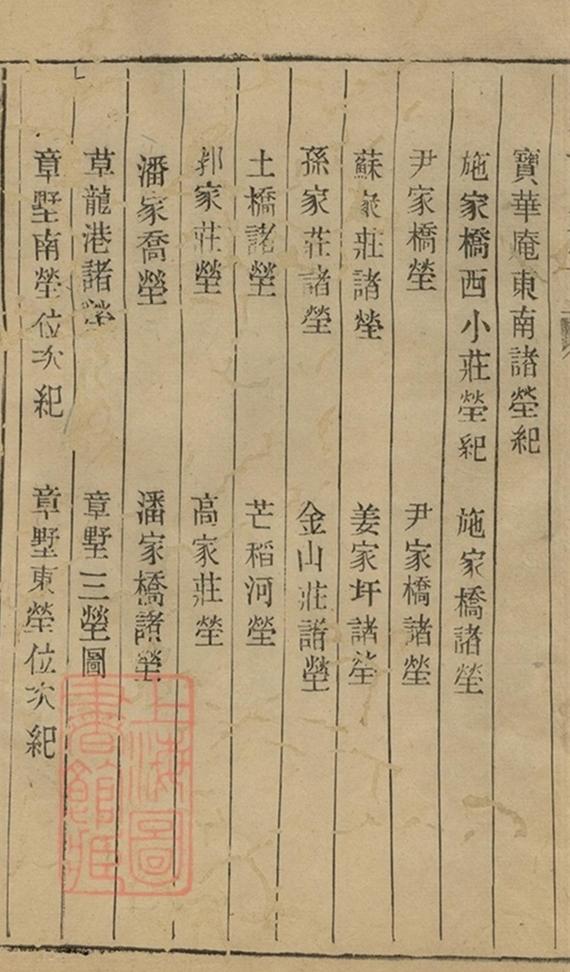 寶華庵東南諸塋紀
施家橋西小莊塋紀 施家橋諸塋
尹家橋塋 尹家橋諸塋
蘇家莊諸塋 姜家圩諸塋
孫家莊諸塋 金山莊諸塋
土橋諸塋 芒稻河塋
家莊塋 高家莊塋
潘家喬塋 潘家橋諸塋
草龍港諸塋 章墅三塋圖
章墅南塋位次紀 章墅東塋位次紀
上海圖
書館藏